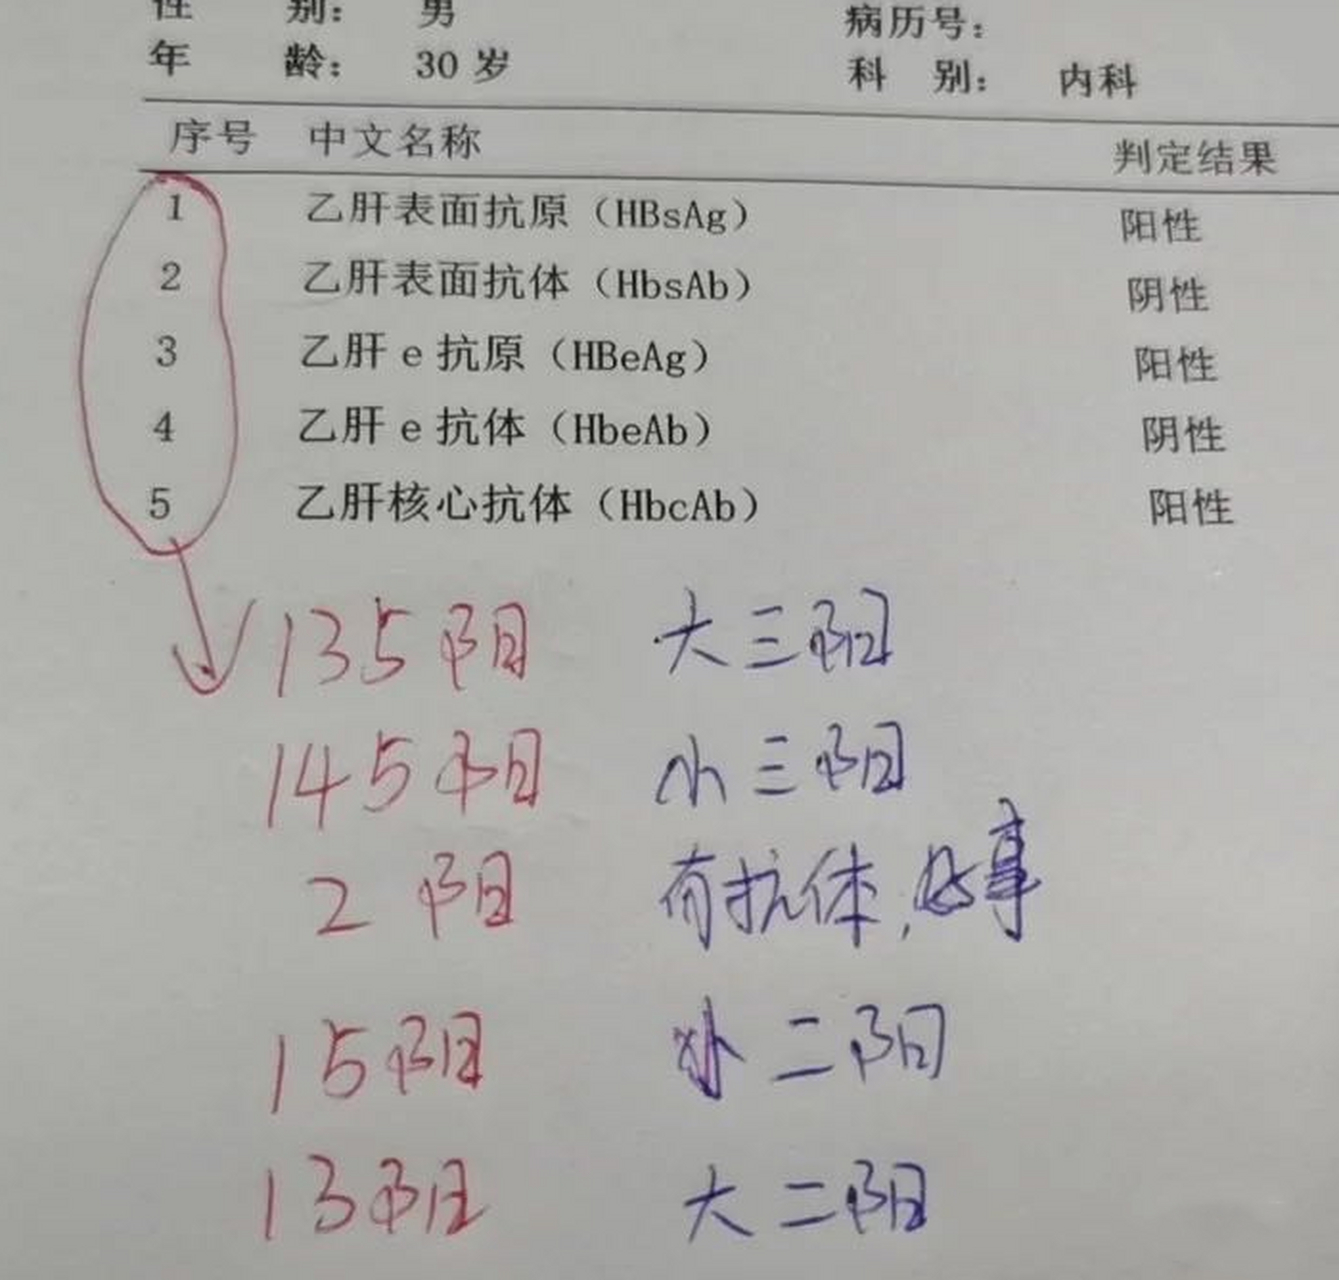 性 别: 男
病历号:
年 龄: 30 岁
科 别: 内科
序号 中文名称 判定结果
1 乙肝表面抗原（HBsAg） 阳性
2 乙肝表面抗体（HbsAb） 阴性
3 乙肝 e 抗原（HBeAg） 阳性
4 乙肝 e 抗体（HbeAb） 阴性
5 乙肝核心抗体（HbcAb） 阳性
135阳 大三阳
145阳 小三阳
2 阳 有抗体,好事
15阳 小二阳
13阳 大二阳